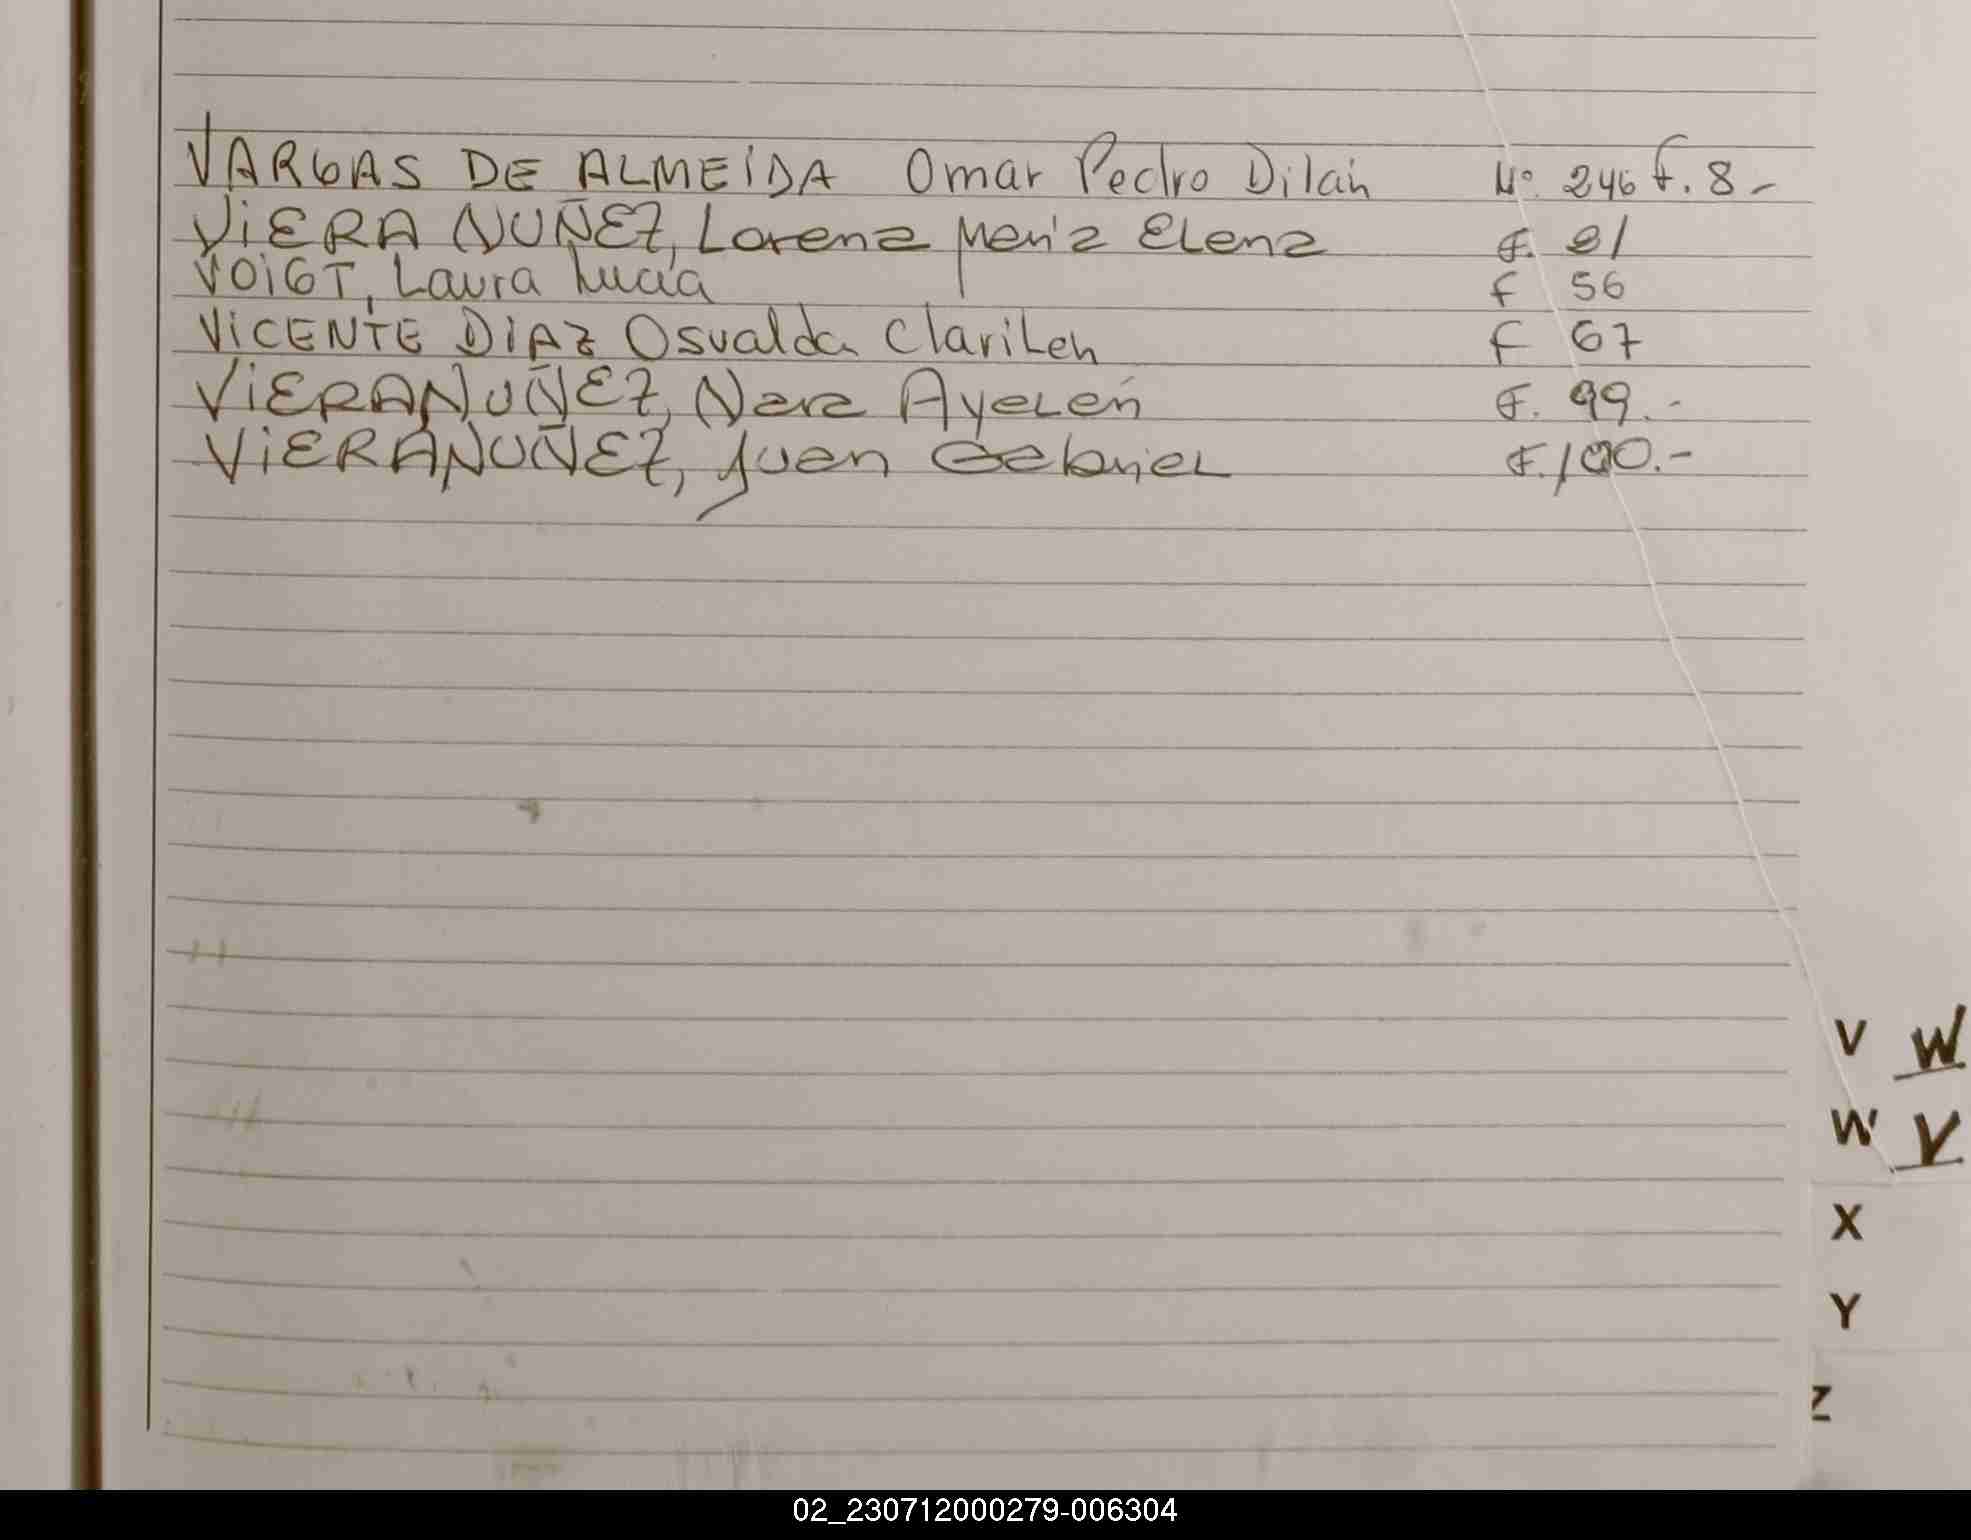 VARGAS DE ALMEIDA Omar Pedro Dilan Nº 246 f. 8-
VIERA NUÑEZ, Lorena María Elena F. 81
VOIGT, Laura Lucía f 56
VICENTE DIAZ Osvalda Clarilen F 67
VIERA NUÑEZ, Nara Ayelén F. 99.-
VIERA NUÑEZ, Juan Gabriel F. 100.-
V W
W V
X
Y
Z
02_230712000279-006304